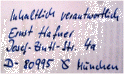 Inhaltlich verantwortlich
Ernst Hafner
Josef- -Str. 4a
D-80995 München